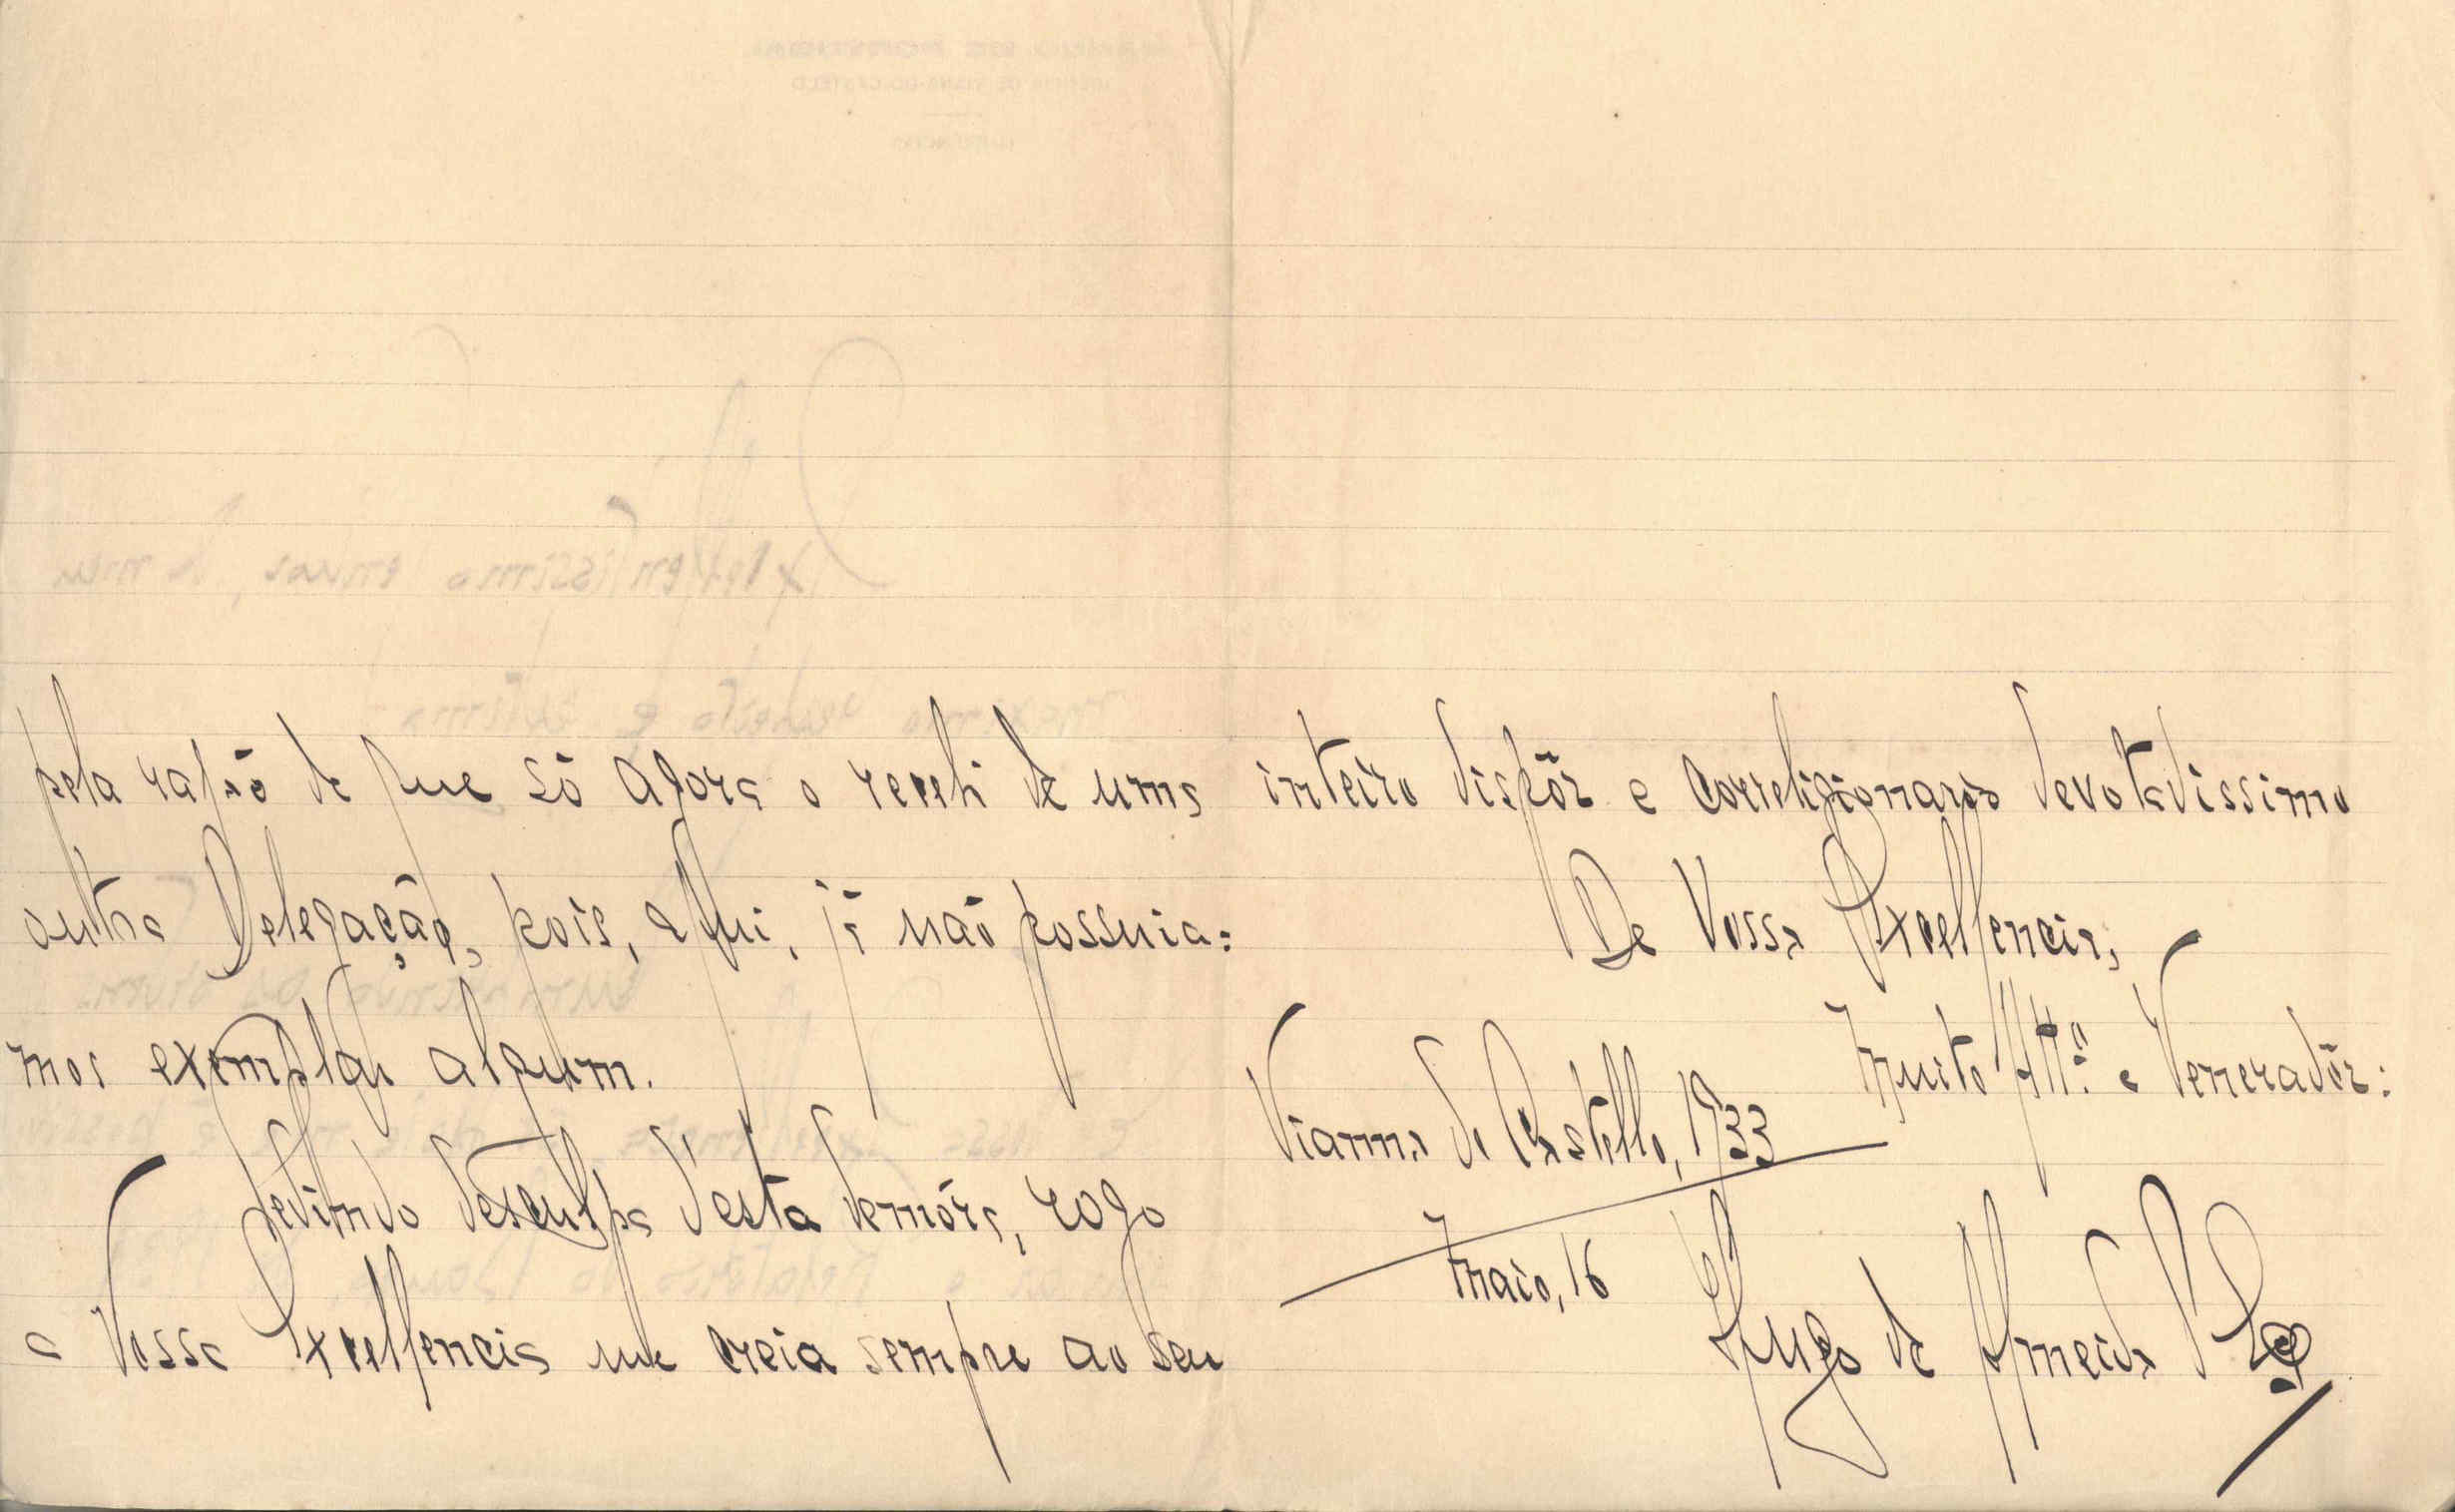 pela razão de que só agora o recebi de uma
outra Delegação, pois, aqui, já não possuia=
mos exemplar algum.
Pedindo desculpa d'esta demóra, rogo
a Vossa Excellencia me creia sempre ao seu
inteiro dispôr e correligionario devotadissimo
De Vossa Excellencia,
Muito Attº. e Veneradôr:
Vianna do Castello, 1933
Maio, 16
Hugo de Almeida